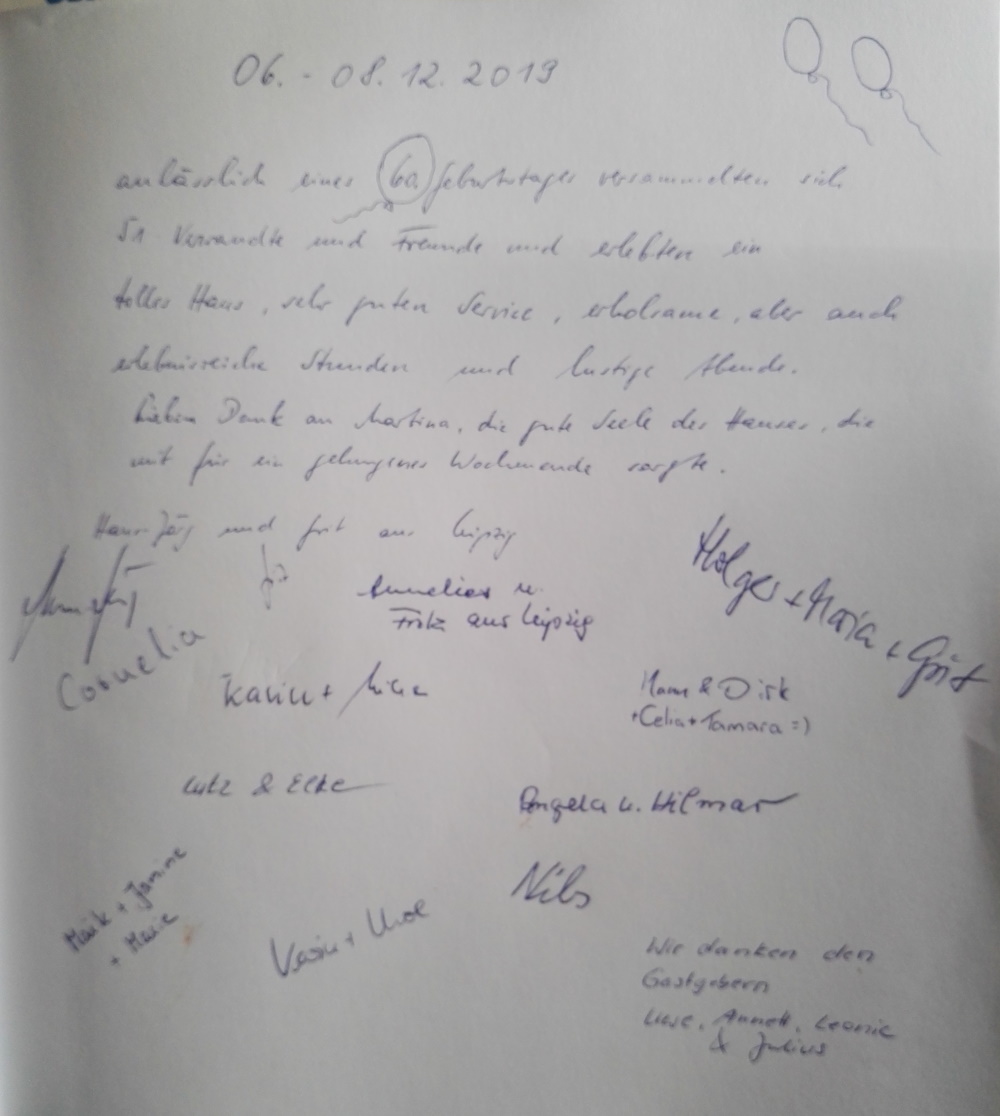 06. - 08. 12. 2019
anlässlich eines 60. Geburtstages versammelten sich
51 Verwandte und Freunde und erlebten ein
tolles Haus, sehr guten Service, erholsame, aber auch
erlebnisreiche Stunden und lustige Abende.
Lieben Dank an Martina, die gute Seele des Hauses, die
mit für ein gelungenes Wochenende sorgte.
Hans-Jörg und Grit aus Leipzig
Annelies u.
Fritz aus Leipzig
Holger + Maria + Grit
Cornelia
Karin +
& Dirk
+Celia+Tamara =)
Lutz & Elke
Angela u. Hilmar
Maik + Janine
+ Marie
Nils
Karin + Uwe
Wir danken den
Gastgebern
Uwe, Annett, Leonie
& Julius